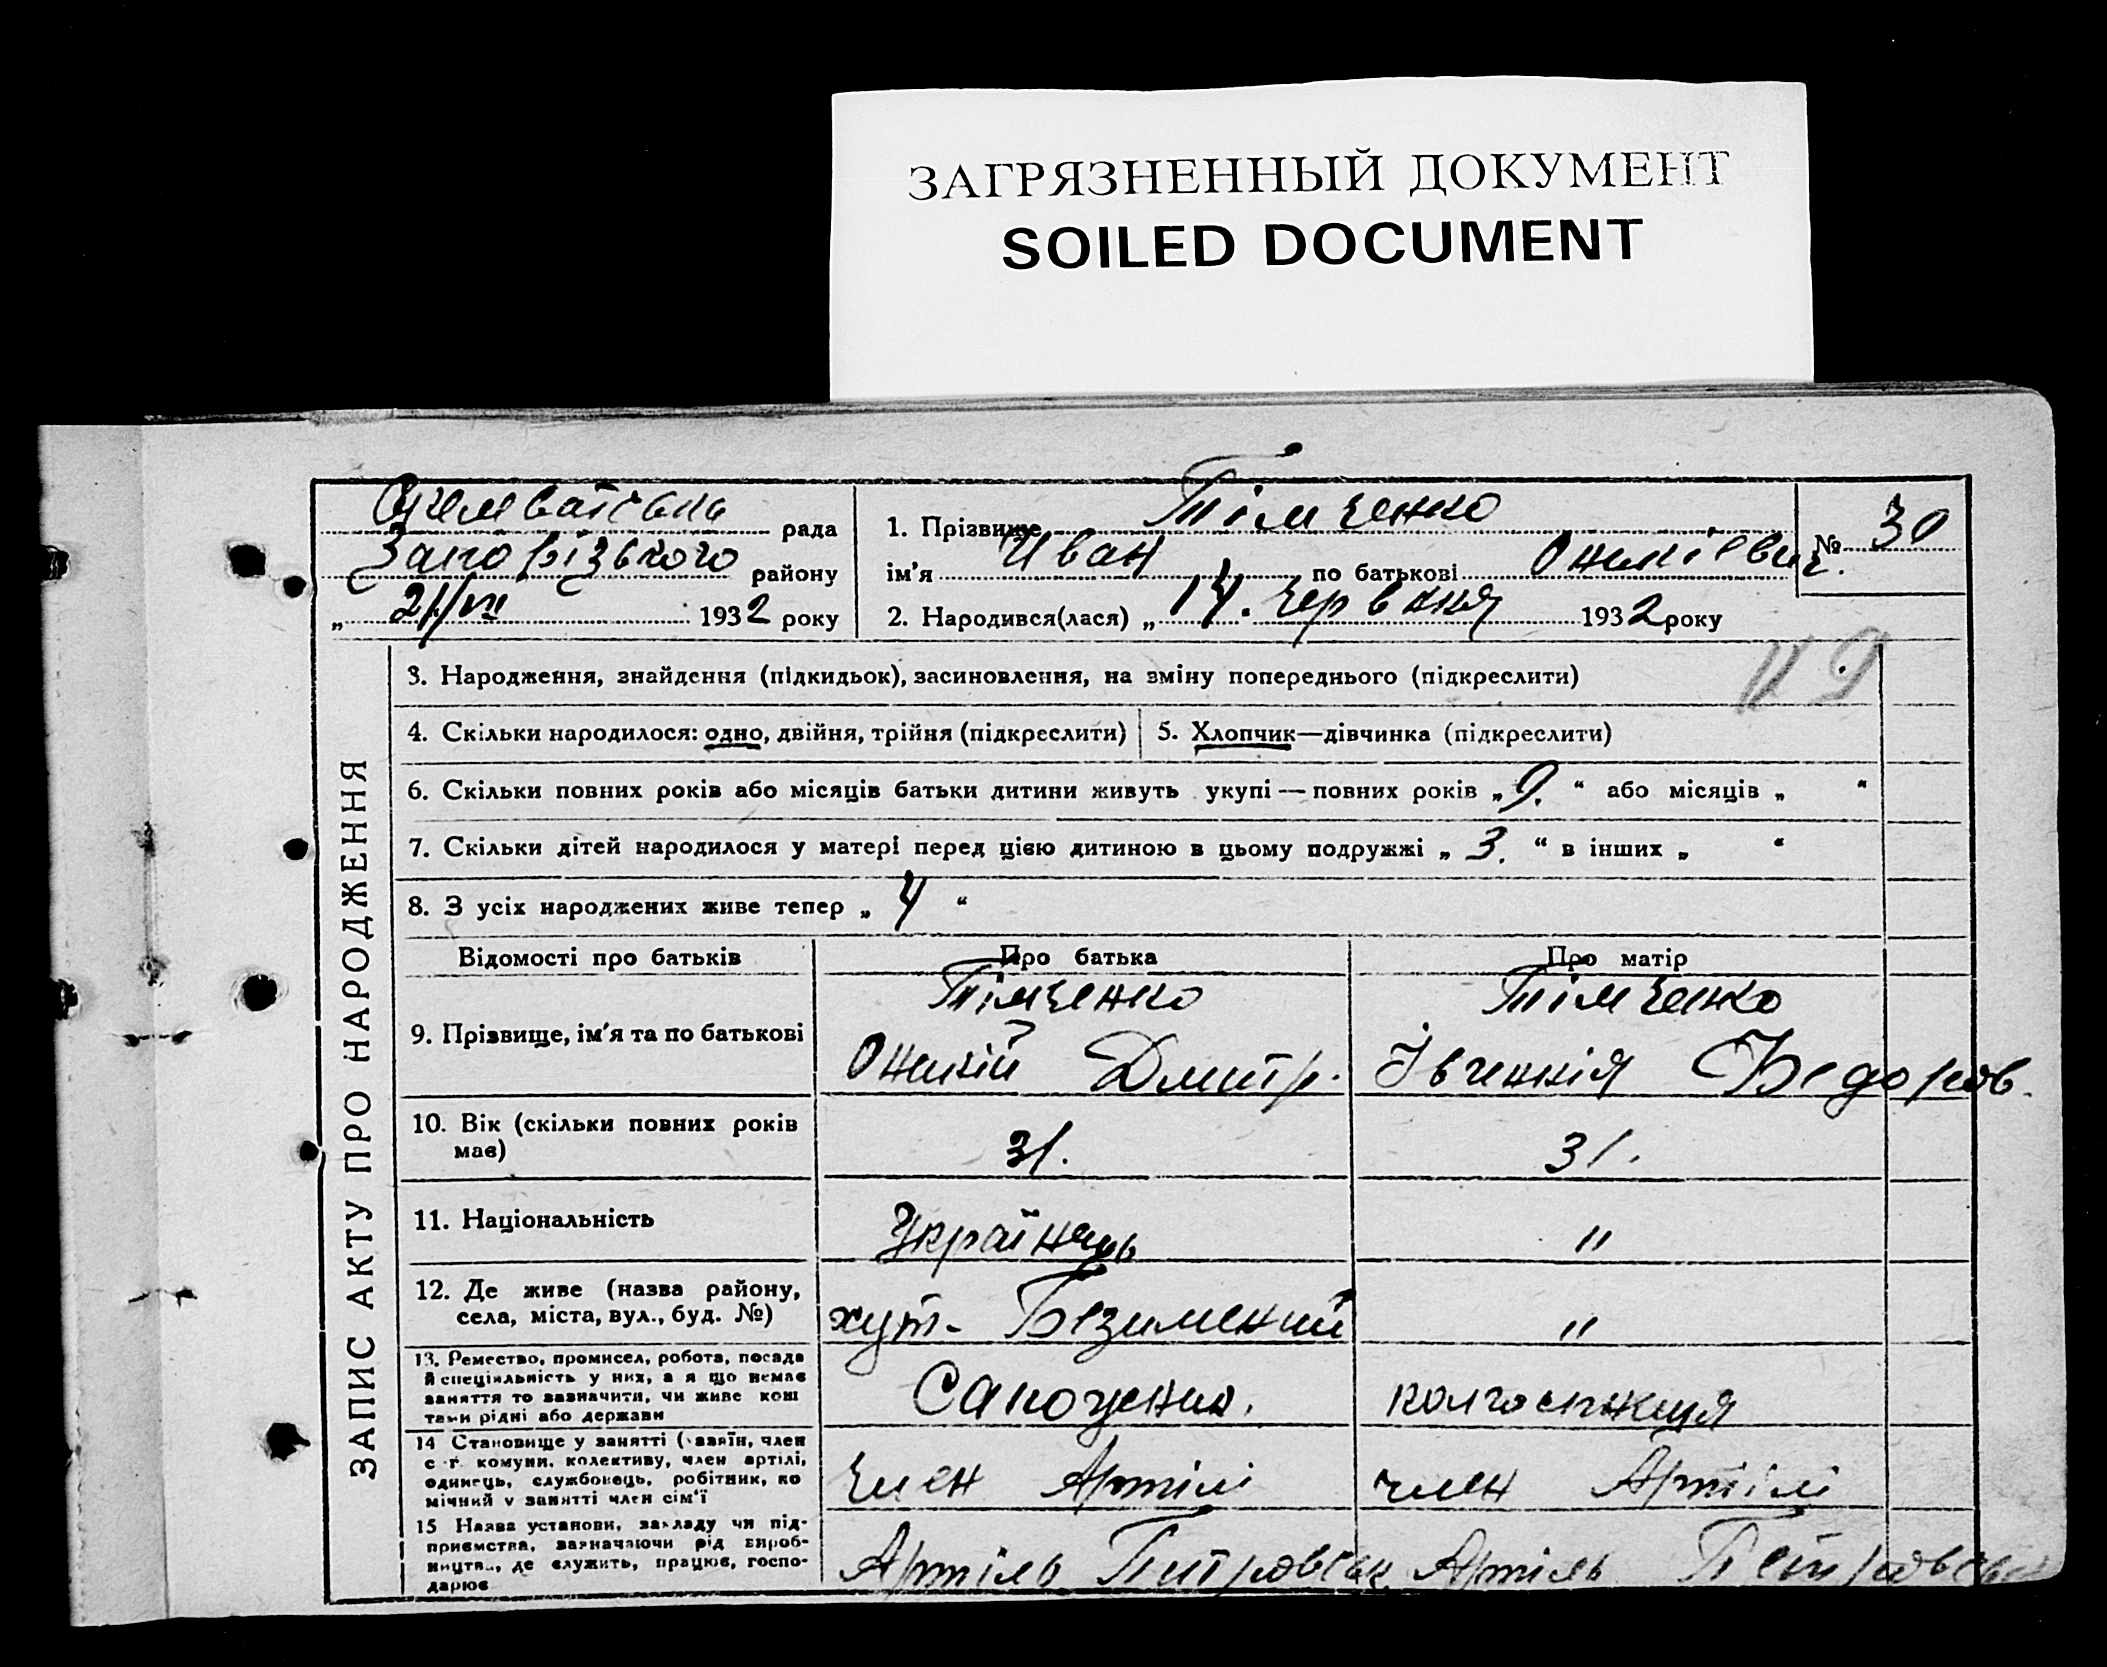 ЗАГРЯЗНЕННЫЙ ДОКУМЕНТ
SOILED DOCUMENT
рада
Запорізького району
„ 21/VII 1932 року
1. Прізвище Тімченко
ім'я Иван по батькові
2. Народився(лася) „ 14. Червння 1932 року
№ 30
119
ЗАПИС АКТУ ПРО НАРОДЖЕННЯ
3. Народження, знайдення (підкидьок), засиновлення, на зміну попереднього (підкреслити)
4. Скільки народилося: одно, двійня, трійня (підкреслити)
5. Хлопчик—дівчинка (підкреслити)
6. Скільки повних років або місяців батьки дитини живуть укупі — повних років „ 9. “ або місяців „ “
7. Скільки дітей народилося у матері перед цією дитиною в цьому подружжі „ 3. “ в інших „ “
8. З усіх народжених живе тепер „ 4 “
Відомості про батьків Про батька Про матір
9. Прізвище, ім'я та по батькові
Тімченко
Дмитр.
Тімченко
Івгенкія Федоров.
10. Вік (скільки повних років
має)
31.
31.
11. Національність
Українець
"
12. Де живе (назва району,
села, міста, вул., буд. №)
хут. Безименний
"
13. Ремество, промисел, робота, посада
й спеціяльність у них, а я що немає
заняття то зазначити, чи живе кош
тами рідні або держави
колгоспниця
14 Становище у занятті (хазяїн, член
с-г. комуни, колективу, член артілі,
одинець, службовець, робітник, по
мічний у занятті член сім'ї
Член Артілі
член Артілі
15 Назва установи, закладу чи під-
приємства, зазначаючи рід вироб-
ництва, де служить, працює, госпо-
дарює
Артіль
Артіль